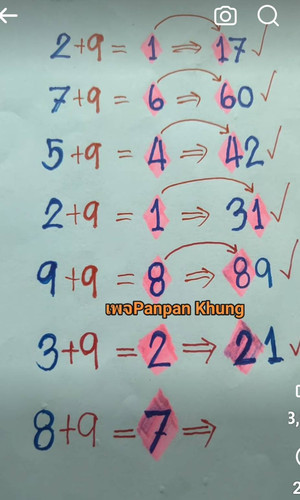 2+9 = 1 ⇒ 17 ✓
7+9 = 6 ⇒ 60 ✓
5+9 = 4 ⇒ 42 ✓
2+9 = 1 ⇒ 31 ✓
9+9 = 8 ⇒ 89 ✓
เพจPanpan Khung
3+9 = 2 ⇒ 21 ✓
8+9 = 7 ⇒
3,
2